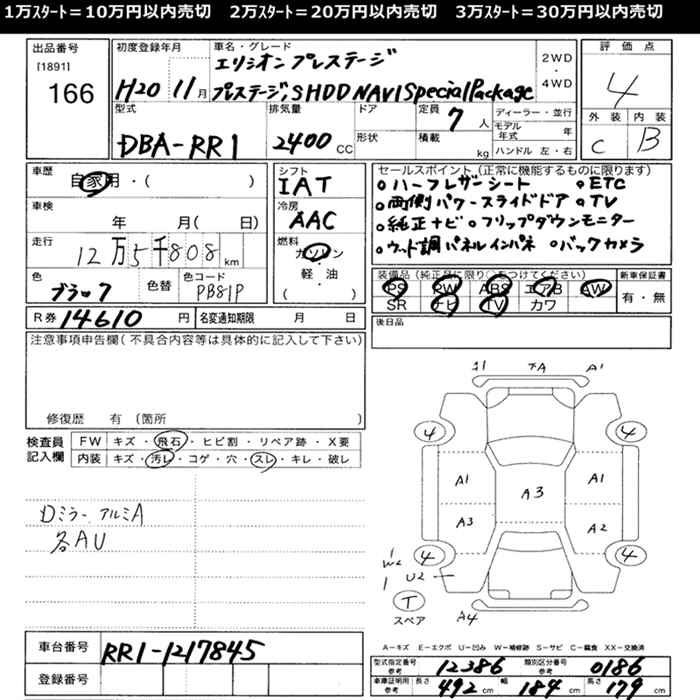 1万スタート＝10万円以内売切　2万スタート＝20万円以内売切　3万スタート＝30万円以内売切
出品番号
[1891]
166
初度登録年月
H20 11月
車名・グレード
エリシオン プレステージ
プレステージ,S HDD NAVI Special Package
2WD
・
4WD
評価点
4
外装 内装
C B
型式
DBA-RR1
排気量
2400 CC
ドア
形状
定員 7人
積載 kg
ディーラー・並行
モデル年式 年
ハンドル 左・右
車歴
自家用・( )
車検
年 月( 日)
走行
12万5千808 km
色
ブラック
色替
色コード
PB81P
シフト
IAT
冷房
AAC
燃料
ガソリン
・
軽・油
( )
セールスポイント(正常に機能するものに限ります)
○ハーフレザーシート ○ETC
○両側パワースライドドア ○TV
○純正ナビ ○フリップダウンモニター
○ウッド調パネルインパネ ○バックカメラ
装備品(純正品に限り○をつけてください)
PS PW ABS エアB AW
SR ナビ TV カワ
新車保証書
有・無
R券 14610 円
名変通知期限 月 日
後日品
注意事項申告欄(不具合内容等は具体的に記入して下さい)
修復歴 有 (箇所 )
検査員
記入欄
FW キズ・飛石・ヒビ割・リペア跡・X要
内装 キズ・汚レ・コゲ・穴・スレ・キレ・破レ
Dミラー アルミA
各AU
A1
4 4
A1 A1
A3
A3 A2
4 4
W2
U2
T
スペア
A4
A−キズ E−エクボ U−凹み W−補修跡 S−サビ C−腐食 XX−交換済
車台番号
RR1-1217845
登録番号
型式指定番号 参考 12386
類別区分番号 参考 0186
車庫証明用 参考 長さ 492 cm 幅 184 cm 高さ 179 cm